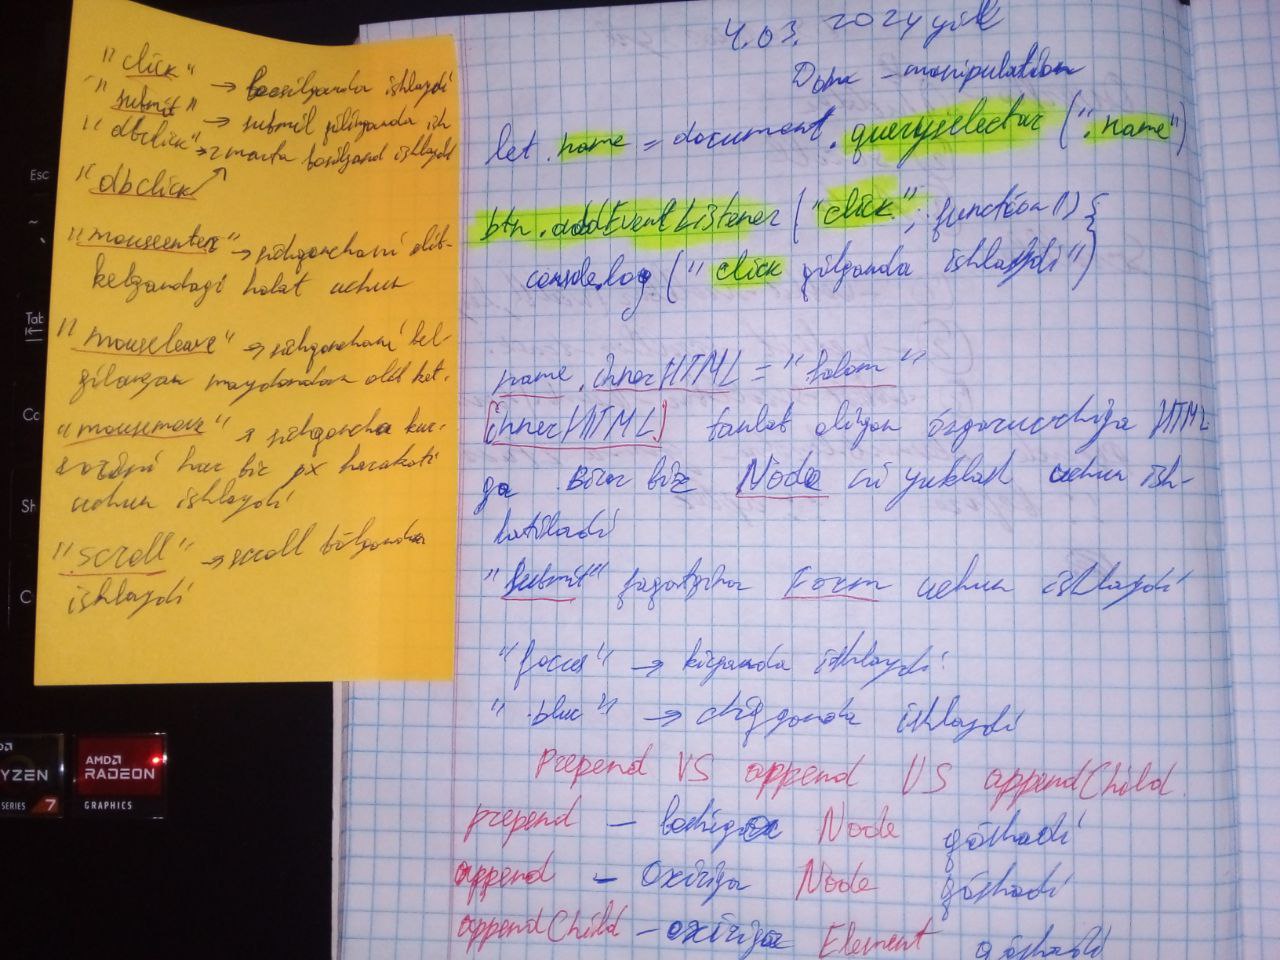 "click" → bosilganda ishlaydi
"submit" → submit qilganda ish
"dbclick" → 2 marta bosilgand ishlaydi
"dbclick
"mouseenter" → sichqonchani olib-
kelgandagi holat uchun
"mouseleave" → sichqonchani bel-
gilangan maydondan olib ket.
"mousemove" → sichqoncha kur-
sorini har bir px harakati
uchun ishlaydi
"scroll" → scroll bo'lganda
ishlaydi
4.03. 2024 yil
Dom - manipulation
let name = document.queryselector(".name")
btn.addEventListener("click", function() {
console.log("click qilganda ishlaydi")}
name.innerHTML = "Salom"
[innerHTML] tanlab olgan o'zgaruvchiga HTML
ga biror bir Node ni yuklash uchun ish-
latiladi
"submit" faqatgina Form uchun ishlaydi
"focus" → kirganda ishlaydi
"blur" → chiqganda ishlaydi
Prepend VS append VS appendChild.
prepend - boshiga Node qo'shadi
append - Oxiriga Node qo'shadi
appendChild - oxiriga Element qo'shadi
Esc
Tab
AMD
RYZEN
SERIES 7
AMD
RADEON
GRAPHICS